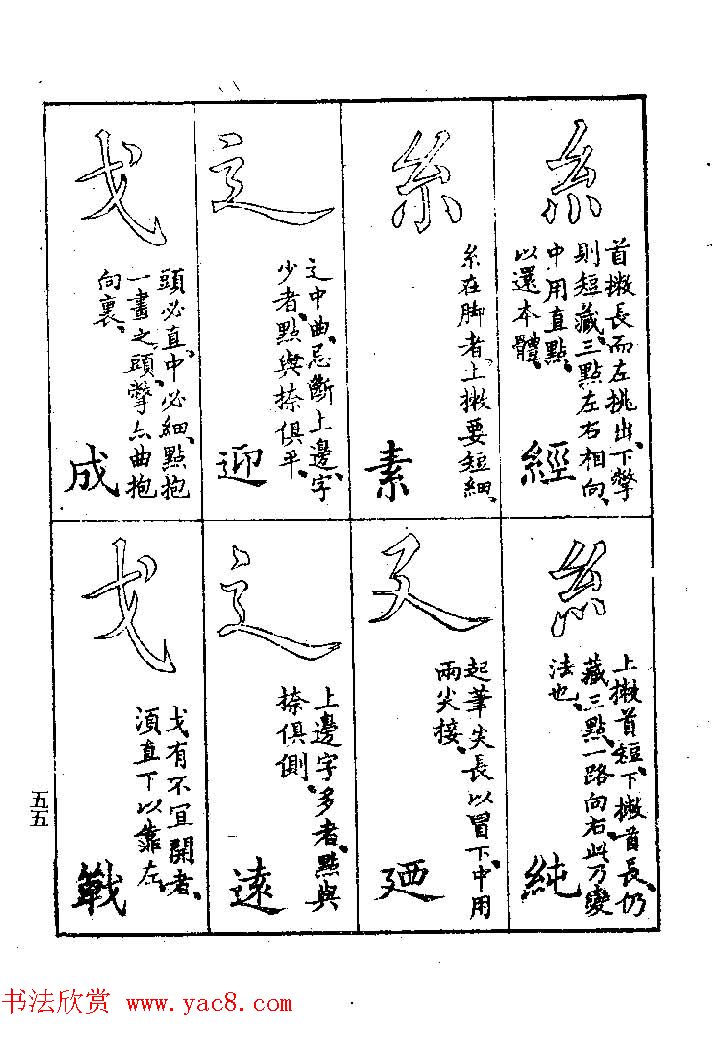 糹
首撇長而左挑出、下撆
則短藏、三點左右相向、
中用直點、
以還本體、
經
糸
糸在脚者、上撇要短細、
素
辶
辶中曲、忌斷、上邊字
少者、點與捺俱平、
迎
戈
頭必直、中必細、點抱
一畫之頭、撆亦曲抱
向裏、
成
糹
上撇首短、下撇首長、仍
藏、三點一路向右、此乃變
法也、
純
廴
起筆尖長以冒下、中用
兩尖接、
廼
辶
上邊字多者、點與
捺俱側、
遠
戈
戈有不宜開者、
須直下以靠左、
戰
五五
书法欣赏 www.yac8.com